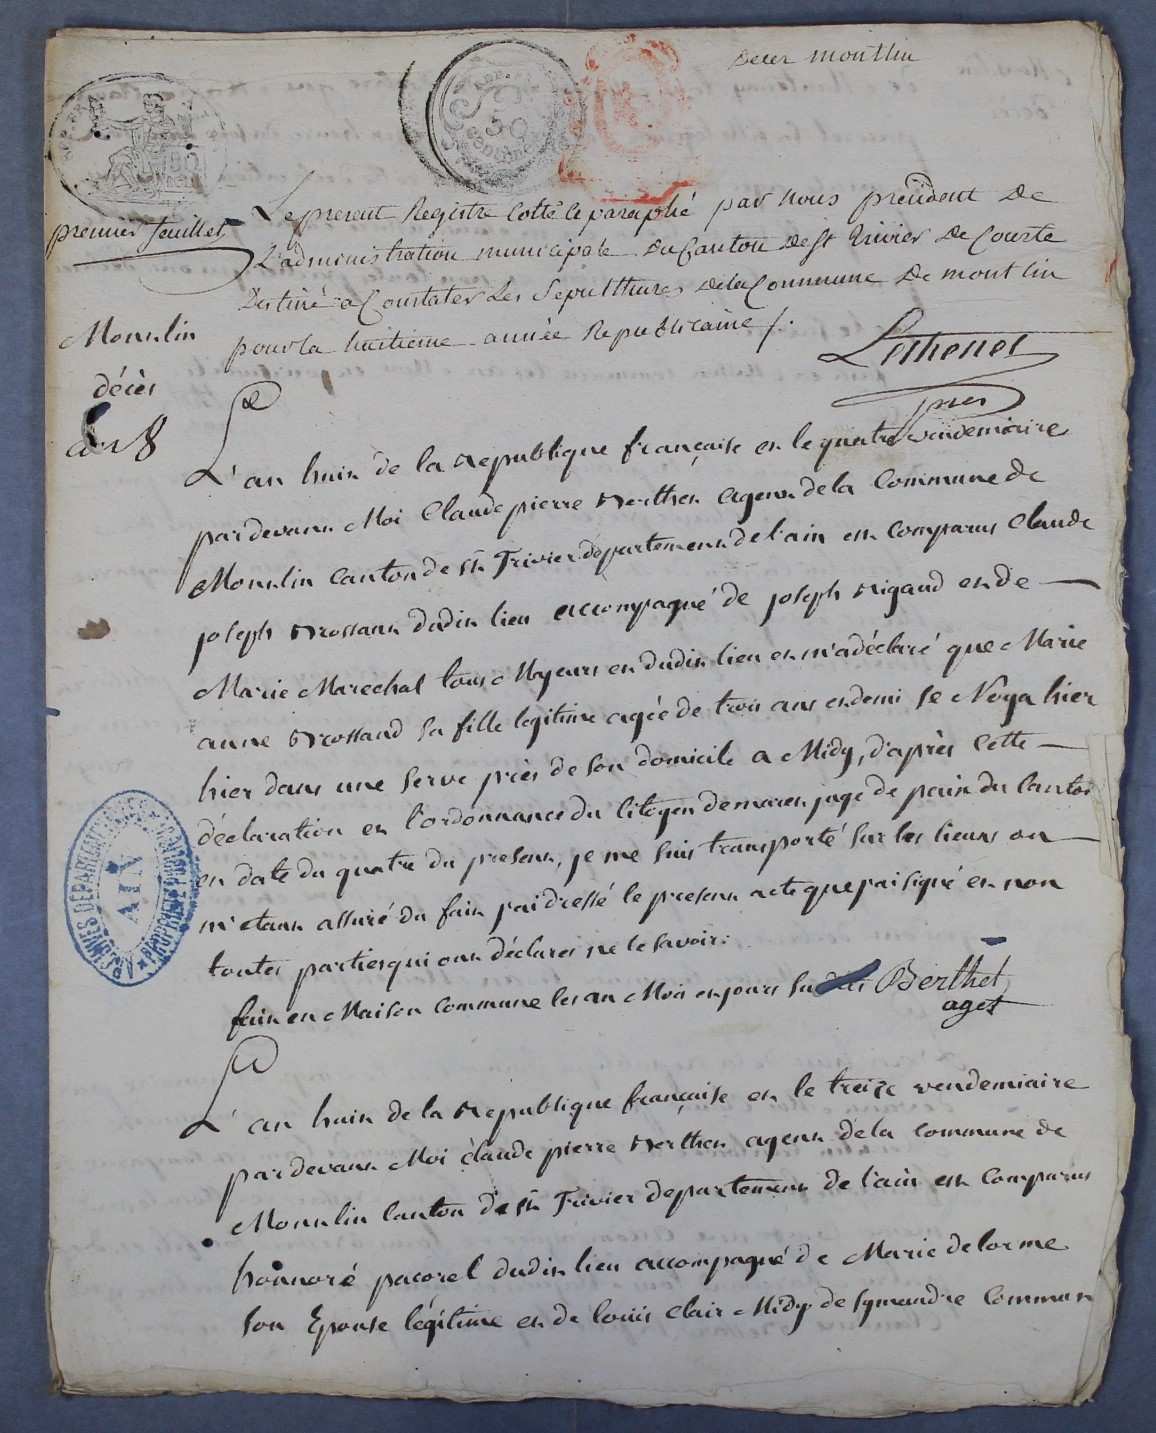 Decer montlin
50
centimes
premier feuillet
Le present Registre Cotté et paraphé par nous président de
L'administration municipale du Canton de St trivier De Courte
Destiné a Constater Les Sepultures de la Commune De montlin
pour la huitieme année Republicaine /.
pres
Montlin
décès
an 8
L'an huit de la Republique française et le quatre vendemiaire
pardevant Moi Claude pierre Berthet agent de la Commune de
Montlin canton de St Trivier département de l'ain est comparus Claude
joseph Brossant dudit lieu accompagné de joseph Rigaud et de
Marie Marechal tous Majeurs et dudit lieu et m'a déclaré que Marie
anne Brossand sa fille legitime agée de trois ans et demi se Noya hier
hier dans une serve près de son domicile a Midy, d'après cette
déclaration et l'ordonnance du Citoyen demaret juge de paix du Canton
en date du quatre du present, je me suis transporté sur les lieux ou
m'etant assuré du fait j'ai dressé le present acte que j'ai signé et non
toutes parties qui ont déclarés ne le savoir.
fait en Maison commune les an Mois et jours susdits Berthet
aget
L'an huit de la Republique française et le treize vendemiaire
pardevant Moi claude pierre Berthet agent de la commune de
Montlin canton de St Trivier departement de l'ain est comparus
honnoré pacorel dudit lieu accompagné de Marie delorme
son Epouse légitime et de louis clair Midy de symandre commun
ARCHIVES DEPARTEMENTALES
AIN
PROPRIETE PUBLIQUE